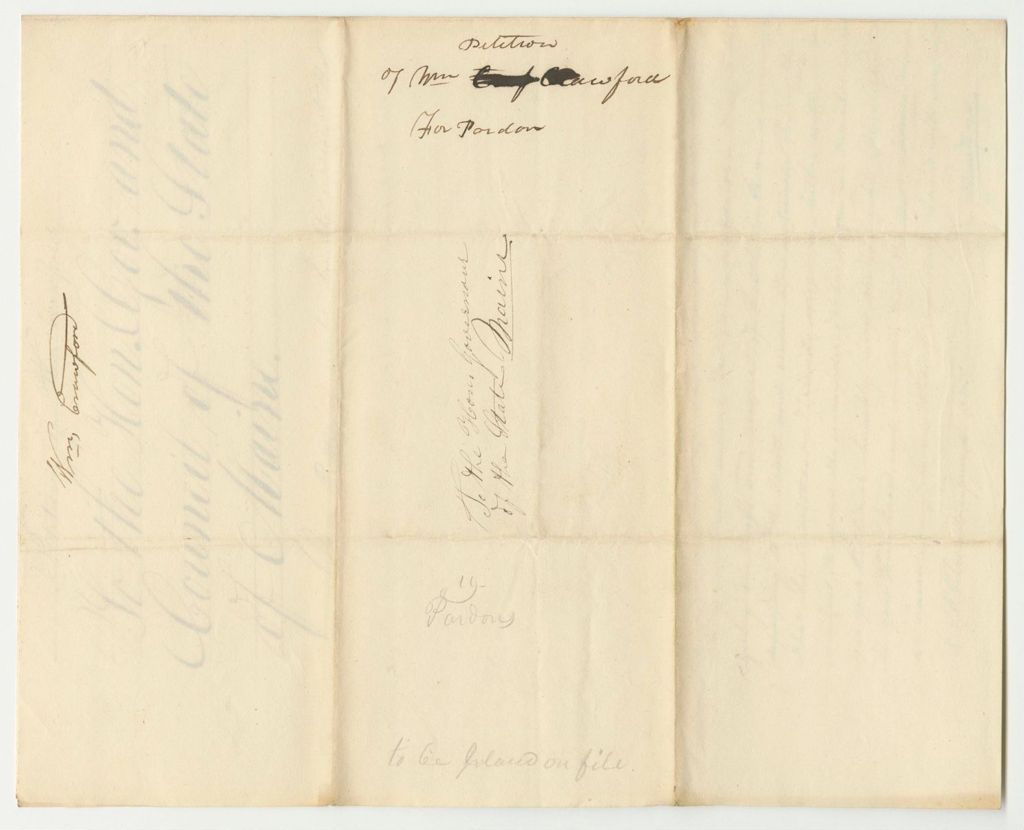 Petition
of Wm Crawford
For Pardon
To the Hon Governour
of the State Maine
Wm Crawford
To the Hon. Gov and
Council of the State
of Maine.
19
Pardons
to be placed on file